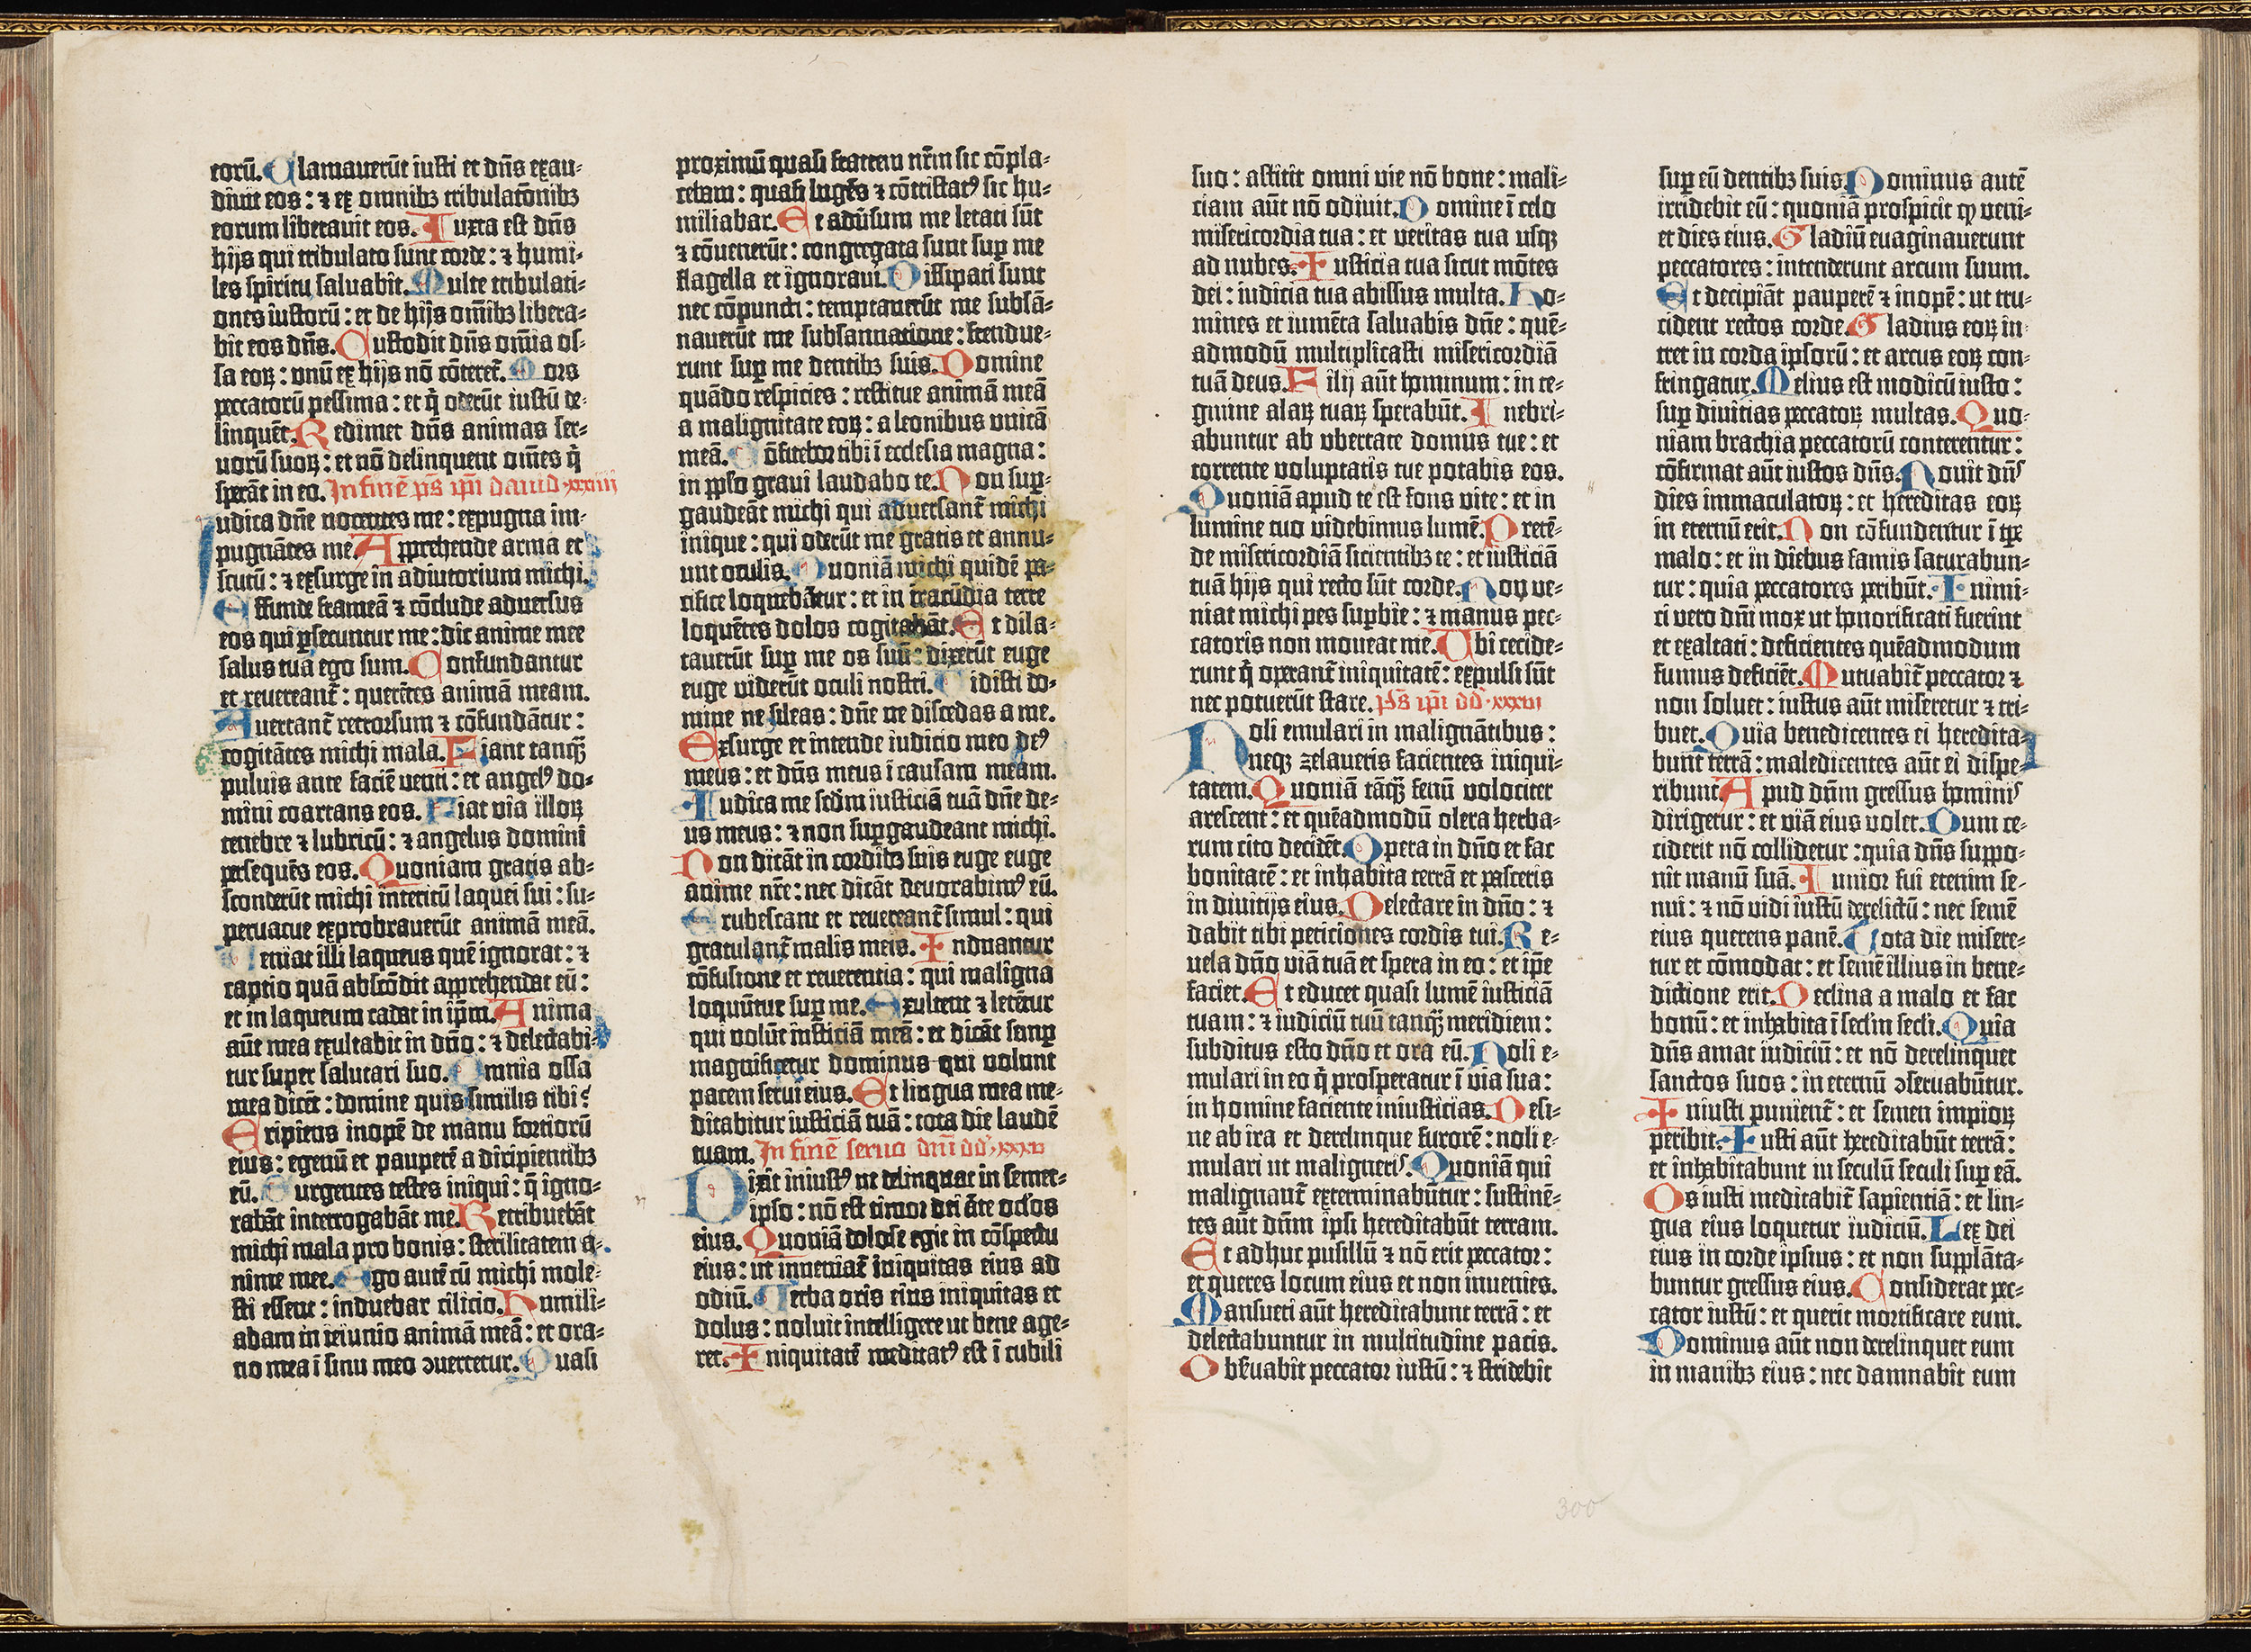 eorū. Clamauerūt iusti et dn̄s exau⸗
diuit eos : ⁊ ex omnibꝫ tribulatōnibꝫ
eorum liberauit eos. Iuxta est dn̄s
hijs qui tribulato sunt corde : ⁊ humi⸗
les spiritu saluabit. Multe tribulati⸗
ones iustorū : et de hijs om̄ibꝫ libera⸗
bit eos dn̄s. Custodit dn̄s om̄ia os⸗
sa eoꝝ : vnū ex hijs nō cōteret᷑. Mors
peccatorū pessima : et q̄ oderūt iustū de⸗
linquēt. Redimet dn̄s animas ser⸗
uorū suoꝝ : et nō delinquent om̄es q̄
sperāt in eo. In finē p̄s ip̄i dauid xxxiiii
Iudica dn̄e nocentes me : expugna im⸗
pugnātes me. Apprehende arma et
scutū : ⁊ exsurge in adiutorium michi.
Effunde frameā ⁊ cōclude aduersus
eos qui ꝑsecuntur me : dic anime mee
salus tua ego sum. Confundantur
et reuereant᷑ : querētes animā meam.
Auertant᷑ retrorsum ⁊ cōfundātur :
cogitātes michi mala. Fiant tanqꝫ̄
puluis ante faciē venti : et angelꝰ do⸗
mini coartans eos. Fiat via illoꝝ
tenebre ⁊ lubricū : ⁊ angelus domini
persequēs eos. Quoniam gratis ab⸗
sconderūt michi interitū laquei sui : su⸗
peruacue exprobrauerūt animā meā.
Veniat illi laqueus quē ignorat : ⁊
captio quā abscōdit apprehendat eū :
et in laqueum cadat in ip̄m. Anima
aūt mea exultabit in dn̄o : ⁊ delectabi⸗
tur super salutari suo. Omnia ossa
mea dicēt : domine quis similis tibi?
Eripiens inopē de manu fortiorū
eius : egenū et pauperē a diripientibꝫ
eū. Surgentes testes iniqui : q̄ igno⸗
rabāt interrogabāt me. Retribuebāt
michi mala pro bonis : sterilitatem a⸗
nime mee. Ego autē cū michi mole⸗
sti essent : induebar cilicio. Humili⸗
abam in ieiunio animā meā : et ora⸗
tio mea ī sinu meo ꝯuertetur. Quasi
proximū quasi fratrem nr̄m sic cōpla⸗
cebam : quasi lugēs ⁊ cōtristatꝰ sic hu⸗
miliabar. Et adūsum me letati sūt
⁊ cōuenerūt : congregata sunt suꝑ me
flagella et ignoraui. Dissipati sunt
nec cōpuncti : temptauerūt me subsā⸗
nauerūt me subsannatione : frendue⸗
runt suꝑ me dentibꝫ suis. Domine
quādo respicies : restitue animā meā
a malignitate eoꝝ : a leonibus vnicā
meā. Cōfitebor tibi ī ecclesia magna :
in pp̄lo graui laudabo te. Non suꝑ⸗
gaudeāt michi qui aduersant᷑ michi
inique : qui oderūt me gratis et annu⸗
unt oculis. Quoniā michi quidē pa⸗
cifice loquebātur : et in iracūdia terre
loquētes dolos cogitabāt. Et dila⸗
tauerūt suꝑ me os suū : dixerūt euge
euge viderūt oculi nostri. Vidisti do⸗
mine ne sileas : dn̄e ne discedas a me.
Exsurge et intende iudicio meo deꝰ
meus : et dn̄s meus ī causam meam.
Iudica me scdm̄ iusticiā tuā dn̄e de⸗
us meus : ⁊ non suꝑgaudeant michi.
Non dicāt in cordibꝫ suis euge euge
anime nr̄e : nec dicāt deuorabimꝰ eū.
Erubescant et reuereant᷑ simul : qui
gratulant᷑ malis meis. Induantur
cōfusione et reuerentia : qui maligna
loquūtur suꝑ me. Exultent ⁊ letētur
qui volūt iusticiā meā : et dicāt semꝑ
magnificetur dominus qui volunt
pacem serui eius. Et lingua mea me⸗
ditabitur iusticiā tuā : tota die laudē
tuam. In finē seruo dn̄i dd̄ xxxv
Dixit iniustꝰ ut delinquat in semet⸗
ipso : nō est timor dei āte oc̄los
eius. Quoniā dolose egit in cōspectu
eius : ut inueniat᷑ iniquitas eius ad
odiū. Verba oris eius iniquitas et
dolus : noluit intelligere ut bene age⸗
ret. Iniquitatē meditatꝰ est ī cubili
suo : astitit omni vie nō bone : mali⸗
ciam aūt nō odiuit. Domine ī celo
misericordia tua : et veritas tua usqꝫ
ad nubes. Iusticia tua sicut mōtes
dei : iudicia tua abissus multa. Ho⸗
mines et iumēta saluabis dn̄e : quē⸗
admodū multiplicasti misericordiā
tuā deus. Filij aūt hominum : in te⸗
gmine alaꝝ tuaꝝ sperabūt. Inebri⸗
abuntur ab vbertate domus tue : et
torrente voluptatis tue potabis eos.
Quoniā apud te est fons vite : et in
lumine tuo videbimus lumē. Pretē⸗
de misericordiā scientibꝫ te : et iusticiā
tuā hijs qui recto sūt corde. Non ve⸗
niat michi pes suꝑbie : ⁊ manus pec⸗
catoris non moueat me. Vbi cecide⸗
runt q̄ operant᷑ iniquitatē : expulsi sūt
nec potuerūt stare. p̄s ip̄i dd̄ xxxvi
Noli emulari in malignātibus :
neqꝫ zelaueris facientes iniqui⸗
tatem. Quoniā tāqꝫ̄ fenū velociter
arescent : et quēadmodū olera herba⸗
rum cito decidēt. Spera in dn̄o et fac
bonitatē : et inhabita terrā et pasceris
in diuitijs eius. Delectare in dn̄o : ⁊
dabit tibi peticiones cordis tui. Re⸗
uela dn̄o viā tuā et spera in eo : et ip̄e
faciet. Et educet quasi lumē iusticiā
tuam : ⁊ iudiciū tuū tanqꝫ̄ meridiem :
subditus esto dn̄o et ora eū. Noli e⸗
mulari in eo q̄ prosperatur ī via sua :
in homine faciente iniusticias. Desi⸗
ne ab ira et derelinque furorē : noli e⸗
mulari ut maligneris. Quoniā qui
malignant᷑ exterminabūtur : sustinē⸗
tes aūt dn̄m ipsi hereditabūt terram.
Et adhuc pusillū ⁊ nō erit peccator :
et queres locum eius et non inuenies.
Mansueti aūt hereditabunt terrā : et
delectabuntur in multitudine pacis.
Obẜuabit peccator iustū : ⁊ stridebit
suꝑ eū dentibꝫ suis. Dominus autē
irridebit eū : quoniā prospicit ꝙ veni⸗
et dies eius. Gladiū euaginauerunt
peccatores : intenderunt arcum suum.
Et decipiāt pauperē ⁊ inopē : ut tru⸗
cident rectos corde. Gladius eoꝝ in⸗
tret in corda ipsorū : et arcus eoꝝ con⸗
fringatur. Melius est modicū iusto :
suꝑ diuitias peccatoꝝ multas. Quo⸗
niam brachia peccatorū conterentur :
cōfirmat aūt iustos dn̄s. Nouit dn̄s
dies immaculatoꝝ : et hereditas eoꝝ
in eternū erit. Non cōfundentur ī tꝑe
malo : et in diebus famis saturabun⸗
tur : quia peccatores peribūt. Inimi⸗
ci vero dn̄i mox ut honorificati fuerint
et exaltati : deficientes quēadmodum
fumus deficiēt. Mutuabit᷑ peccator ⁊
non soluet : iustus aūt miseretur ⁊ tri⸗
buet. Quia benedicentes ei heredita⸗
bunt terrā : maledicentes aūt ei dispe⸗
ribunt. Apud dn̄m gressus hominis
dirigetur : et viā eius volet. Cum ce⸗
ciderit nō collidetur : quia dn̄s suppo⸗
nit manū suā. Iunior fui etenim se⸗
nui : ⁊ nō vidi iustū derelictū : nec semē
eius querens panē. Tota die misere⸗
tur et cōmodat : et semē illius in bene⸗
dictione erit. Declina a malo et fac
bonū : et inhabita ī secl̄m secl̄i. Quia
dn̄s amat iudiciū : et nō derelinquet
sanctos suos : in eternū ꝯseruabūtur.
Iniusti punient᷑ : et semen impioꝝ
peribit. Iusti aūt hereditabūt terrā :
et inhabitabunt in seculū seculi suꝑ eā.
Os iusti meditabit᷑ sapientiā : et lin⸗
gua eius loquetur iudiciū. Lex dei
eius in corde ipsius : et non supplāta⸗
buntur gressus eius. Considerat pec⸗
cator iustū : et querit mortificare eum.
Dominus aūt non derelinquet eum
in manibꝫ eius : nec damnabit eum
300